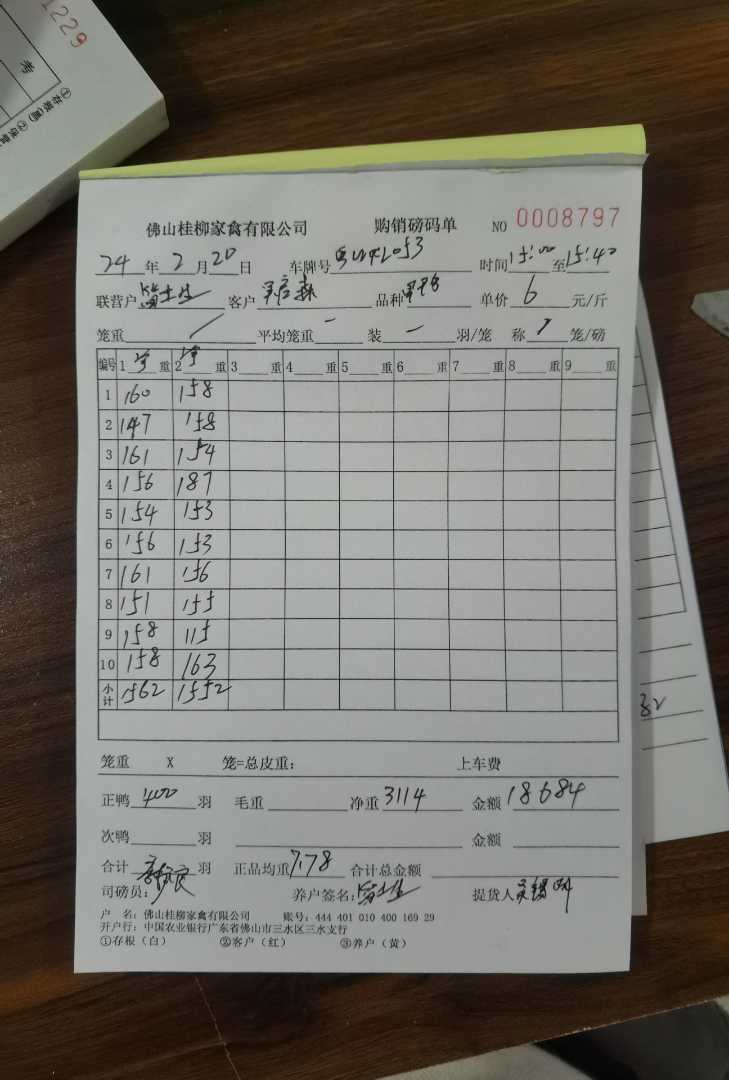 1229
考
佛山桂柳家禽有限公司 购销磅码单 NO 0008797
24年2月20日 车牌号 时间15:00至15:40
联营户 客户 品种 单价6元/斤
笼重 / 平均笼重 - 装 - 羽/笼 称 笼/磅
编号 1 净 重 2 净 重 3 重 4 重 5 重 6 重 7 重 8 重 9 重
1 160 158
2 147 158
3 161 154
4 156 187
5 154 153
6 156 153
7 161 156
8 151 155
9 158 115
10 158 163
小计 1562 1552
笼重 X 笼=总皮重: 上车费
正鸭 400 羽 毛重 净重 3114 金额 18684
次鸭 羽 金额
合计 羽 正品均重 7.78 合计总金额
司磅员: 养户签名: 提货人
户 名: 佛山桂柳家禽有限公司 账号: 444 401 010 400 169 29
开户行: 中国农业银行广东省佛山市三水区三水支行
①存根(白) ②客户(红) ③养户(黄)